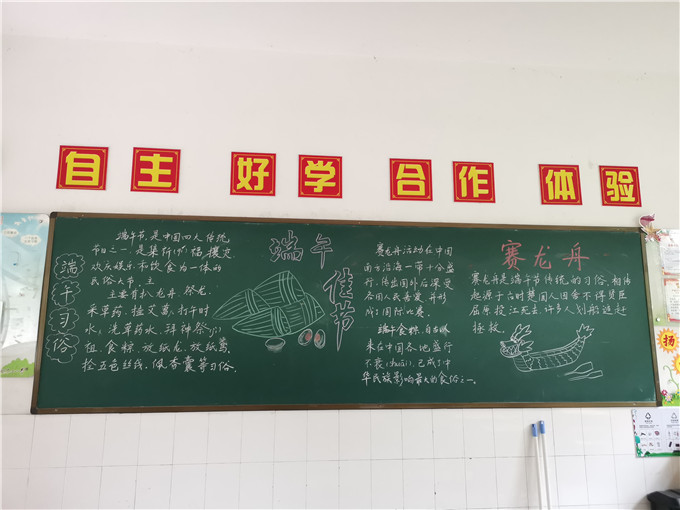 自主 好学 合作 体验
端午习俗
端午节,是中国四大传统
节日之一,是集祈(qí)福,攘灾
欢庆娱乐和饮食为一体的
民俗大节,主
主要有扒龙舟、祭龙、
采草药,挂艾蒿,打午时
水,洗草药水,拜神祭(jì)
祖,食粽,放纸龙,放纸鸢,
拴五色丝线,佩香囊等习俗。
端午
佳节
赛龙舟活动在中国
南方沿海一带十分盛
行,传出国外后深受
各国人民喜爱并形
成了国际比赛。
端午食粽,自古以
来在中国各地盛行
不衰(shuāi),已成了中
华民族影响最大的食俗之一。
赛龙舟
赛龙舟是端午节传统的习俗,相传
起源于古时楚国人因舍不得贤臣
屈原投江死去,许多人划船追赶
拯救
扬